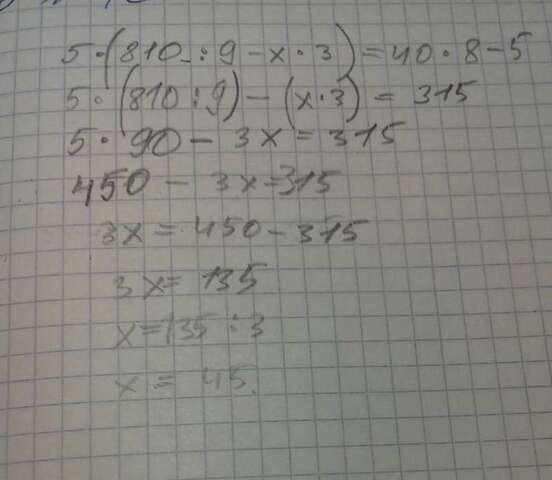 5·(810 : 9 - x · 3) = 40 · 8 - 5
5 · (810 : 9) - (x · 3) = 315
5 · 90 - 3x = 315
450 - 3x = 315
3x = 450 - 315
3x = 135
x = 135 : 3
x = 45.